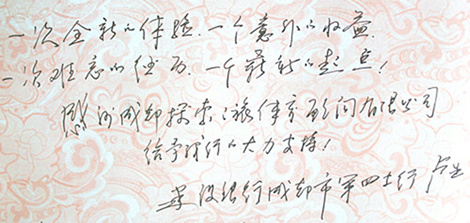 一次全新的体验,一个意外的收益
一次难忘的经历,一个崭新的起点!
感谢成都探索之旅体育顾问有限公司
给予我行的大力支持!
建设银行成都市第四支行 卢